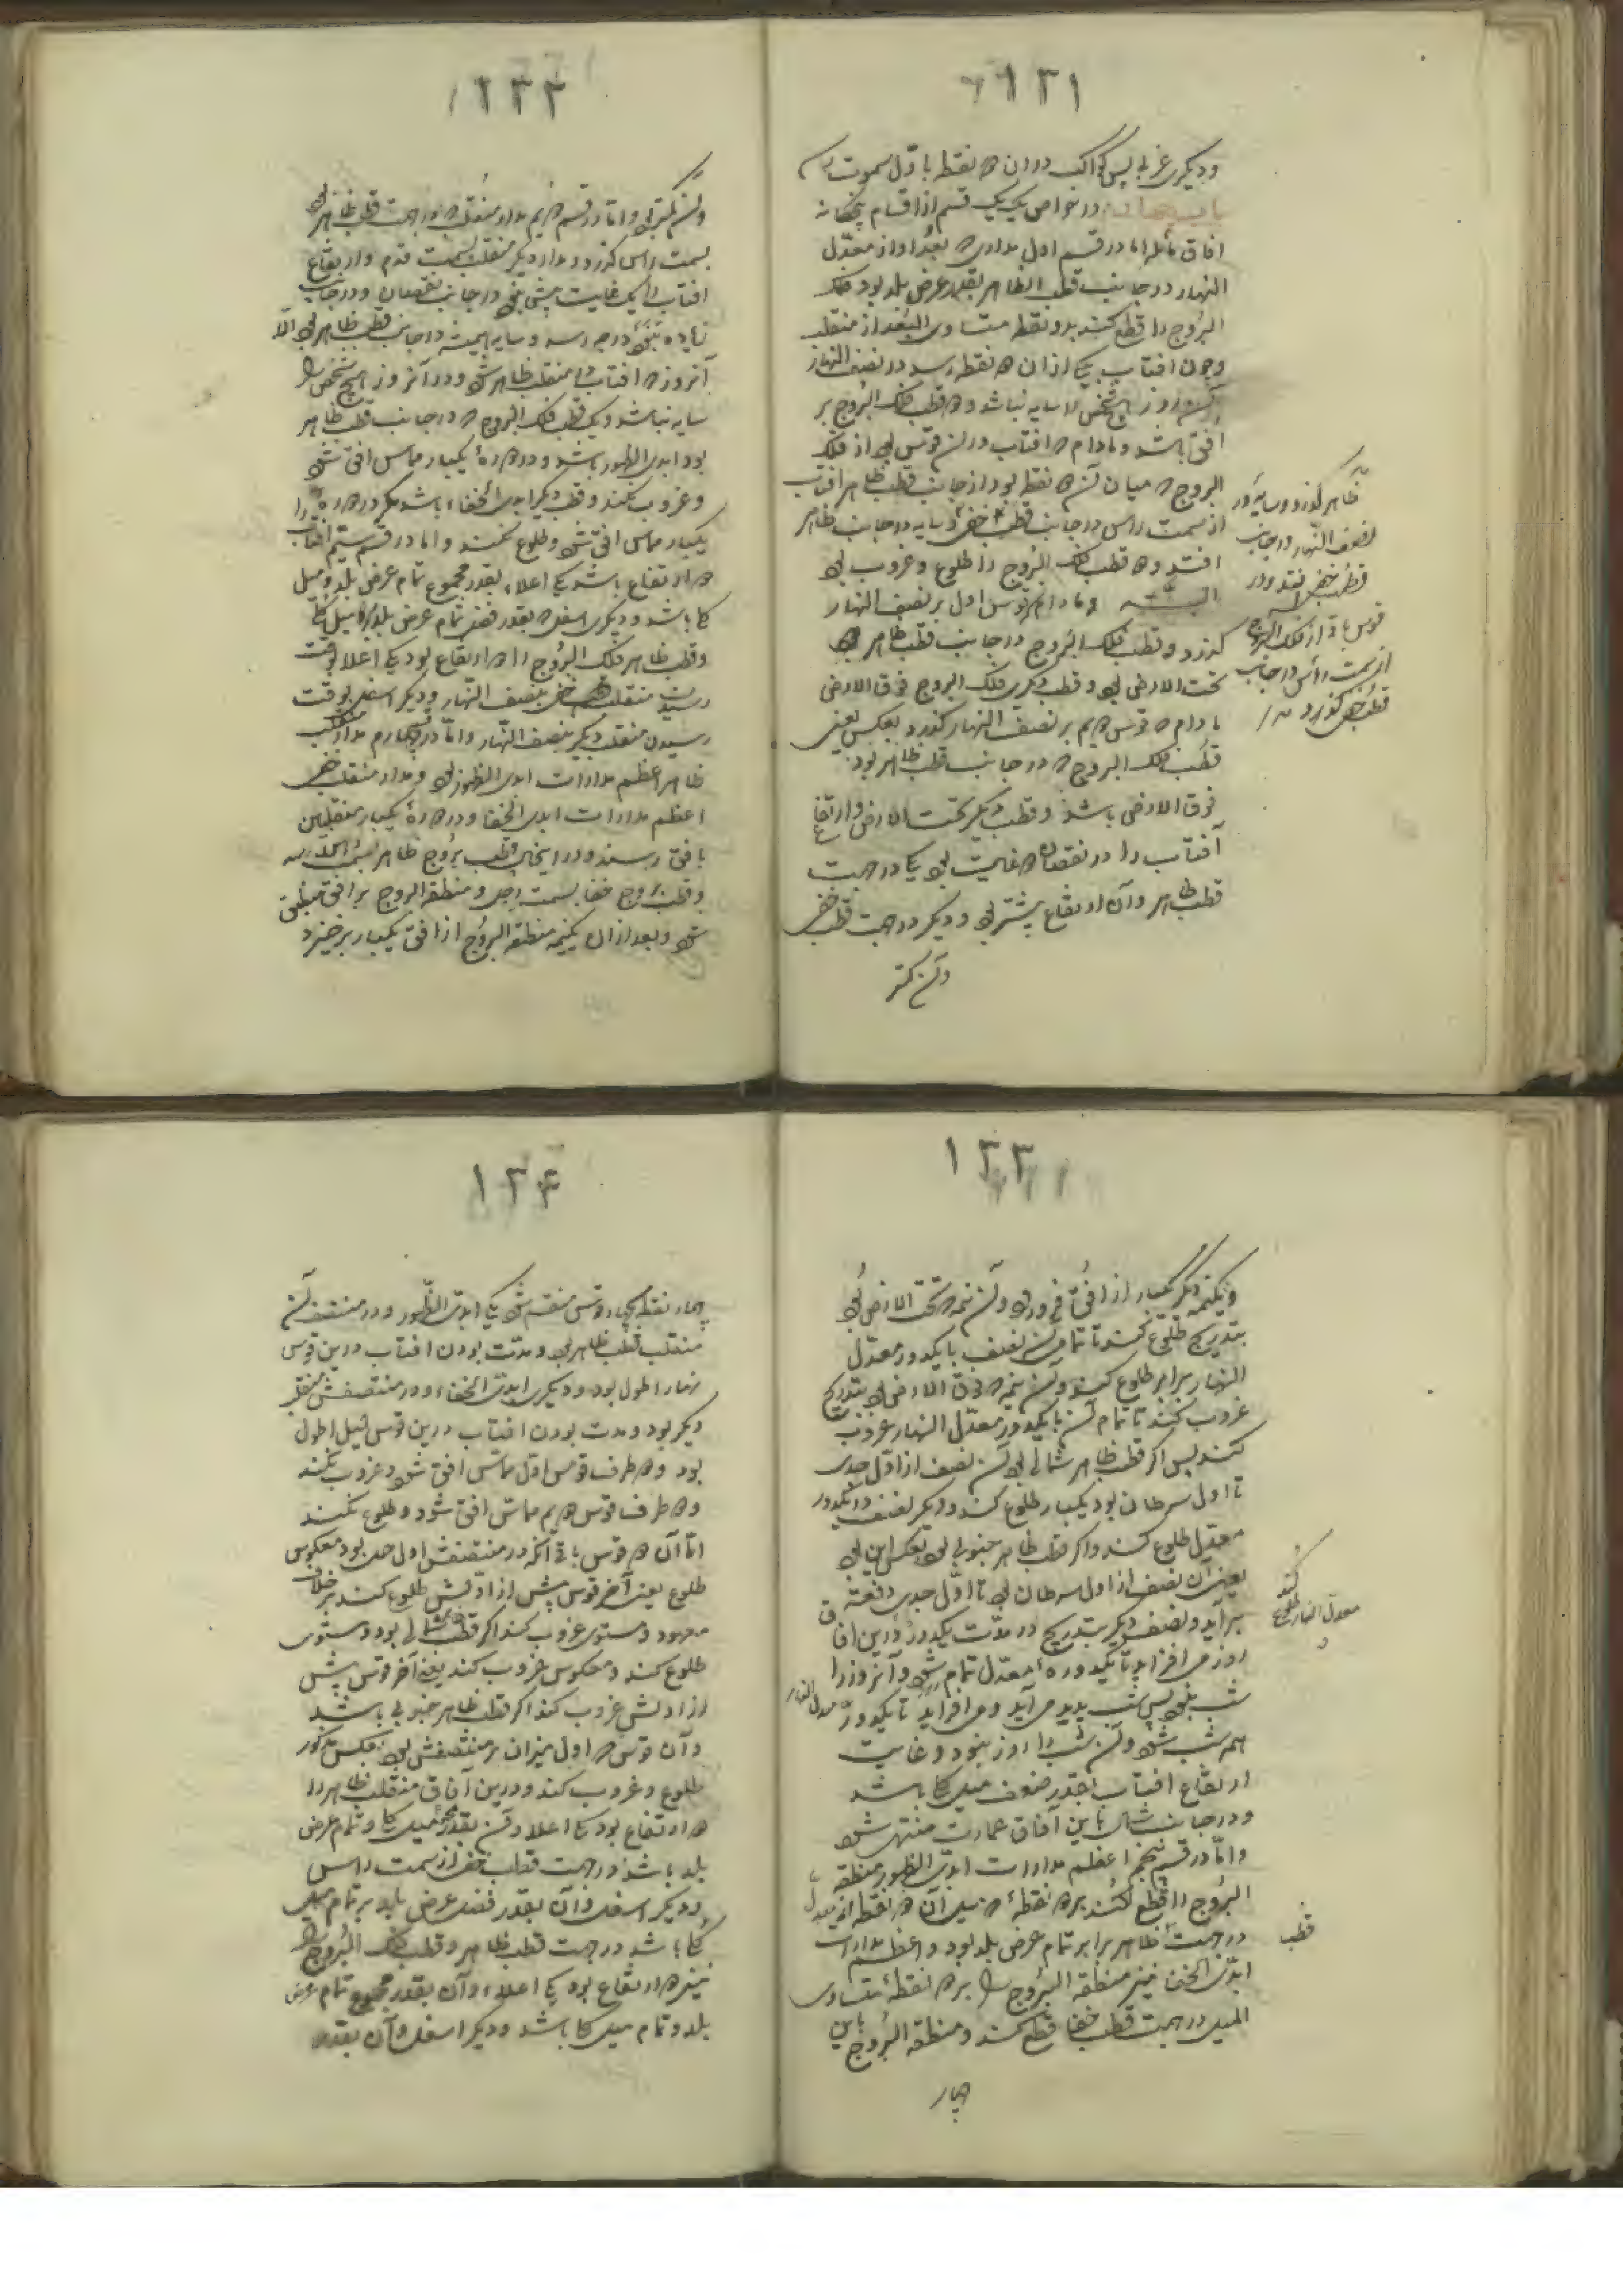 ١٣١
ودیکری غربی پس کواکب دران ۲ نقطه باول سموت
باب چهارم در خواص یک یک قسم از اقسام پنجکانه
افاق مائله اما در قسم اول مداری که بعد او از معدل
النهار در جانب قطب الظاهر بقدر عرض بلد بود فلک
البروج را قطع کند بدو نقطه متساوی البعد از منقلب
وچون افتاب بیکی ازان ۲ نقطه رسد در نصف النهار
آن روز هیچ شخص را سایه نباشد و۲ قطب فلک البروج بر
افق باشد ومادام که افتاب دران قوس بود از فلک
البروج که میان آن ۲ نقطه بود از جانب قطب ظاهر افتاب
از سمت راس در جانب قطب خفی وسایه در جانب ظاهر
افتد و۲ قطب فلک البروج را طلوع وغروب بود
البته ومادام که قوس اول بر نصف النهار
کذرد وقطب فلک البروج در جانب قطب ظاهر
تحت الارض بود وقطب دیکری فلک البروج فوق الارض
مادام که قوس دویم بر نصف النهار کذرد بعکس یعنی
قطب فلک البروج که در جانب قطب ظاهر بود
فوق الارض باشد وقطب دیکر تحت الارض وارتفاع
آفتاب را در نقصان ۲ غایت بود یکی در جهت
قطب ظاهر وآن ارتفاع بیشتر بود ودیکر در جهت قطب خفی
وآن کمتر
ظاهر کذرد وسایه در
نصف النهار در جانب
قطب خفی افتد ودر
قوس باقی از فلک البروج
از سمت راس در جانب
قطب خفی کذرد
١٣٢
وآن کمتر بود واما در قسم دویم مدار منقلب که در جهت قطب ظاهر بود
بسمت راس کذرد ومدار دیکر منقلب بسمت قدم وارتفاع
افتاب را یک غایت بیش نبود در جانب نقصان ودر جانب
زیاده بنود درجه رسد وسایه همیشه در جانب قطب ظاهر بود الا
آنروز که افتاب بمنقلب ظاهر شود ودر آنروز هیچ شخص را
سایه نباشد ویک قطب فلک البروج که در جانب قطب ظاهر
بود ابدی الظهور باشد ودر دورهٔ یکبار مماس افق شود
وغروب نکند وقطب دیکر ابدی الخفاء باشد مکر در دوره
یکبار مماس افق شود وطلوع نکند واما در قسم سیم افتاب را
۲ ارتفاع باشد یکی اعلاء بقدر مجموع تمام عرض بلد ومیل
کلی باشد ودیکری اسفل که بقدر فضل تمام عرض بلد بر میل کلی
وقطب ظاهر فلک البروج را ۲ ارتفاع بود یکی اعلا بوقت
رسیدن منقلب خفی بنصف النهار ودیکر اسفل بوقت
رسیدن منقلب دیکر بنصف النهار واما در قسم چهارم مدار منقلب
ظاهر اعظم مدارات ابدی الظهور بود ومدار منقلب خفی
اعظم مدارات ابدی الخفا ودر دورهٔ یکبار منقلبین
بافق رسند ودر اینحال قطب بروج ظاهر بسمت راس رسد
وقطب بروج خفا بسمت رجل ومنطقه البروج بر افق منطبق
شود وبعد ازان یکنیمه منطقه البروج از افق یکبار برخیزد
١٣٣
ویکنیمه دیکر یکبار از افق فرو رود وآن نیمه که تحت الارض بود
بتدریج طلوع کند تا تمام آن نصف بایکدور معدل
النهار برابر طلوع کند وآن نیمه که فوق الارض بود بتدریج
غروب کند تا تمام آن بایکدور معدل النهار غروب
کند پس اکر قطب ظاهر شمالی بود آن نصف از اول جدی
تا اول سرطان بود یکبار طلوع کند ودیکر نصف در یکدور
معدل طلوع کند واکر قطب ظاهر جنوبی بود بعکس این بود
یعنی آن نصف از اول سرطان بود تا اول جدی دفعة
برآید ونصف دیکر بتدریج در مدت یکدور ودرین افاق
روز می افزاید تا یکدوره معدل تمام روز شود وآنروز را
شب نبود پس شب پدید می آید ومی افزاید تا یکدور معدل النهار
همه شب شود وآن شب را روز نبود وغایت
ارتفاع افتاب بقدر ضعف میل کلی باشد
ودر جانب شمال باین آفاق عمارت منتهی شود
واما در قسم پنجم اعظم مدارات ابدی الظهور منطقه
البروج را قطع کند بر ۲ نقطهٔ که میل آن ۲ نقطه از معدل
در جهت ظاهر برابر تمام عرض بلد بود واعظم مدارات
ابدی الخفا نیز منطقه البروج را بر ۲ نقطهٔ متساوی
المیل در جهت قطب خفا قطع کند ومنطقه البروج باین
چهار
کند
معدل النهار طلوع
قطب
١٣٤
چهار نقطه بچهار قوس منقسم شود یکی ابدی الظهور ودر منتصف آن
منقلب قطب ظاهر بود ومدت بودن افتاب درین قوس
نهار اطول بود ودیکری ابدی الخفاء ودر منتصفش منقلب
دیکر بود ومدت بودن افتاب درین قوس لیل اطول
بود و۲ طرف قوس اول مماس افق شود وغروب نکند
و۲ طرف قوس دویم مماس افق شود وطلوع نکند
اما آن ۲ قوس باقی آنکه در منتصفش اول حمل بود معکوس
طلوع یعنی آخر قوس پیش از اولش طلوع کند بر خلاف
معهود ومستوی غروب کند اکر قطب شمالی بود ومستوی
طلوع کند ومعکوس غروب کند یعنی آخر قوس پیش
از اولش غروب کند اکر قطب ظاهر جنوبی باشد
وآن قوس که اول میزان بر منتصفش بود بعکس مذکور
طلوع وغروب کند ودرین آفاق منقلب ظاهر را
۲ ارتفاع بود یکی اعلا وآن بقدر مجموع میل کلی وتمام عرض
بلد باشد در جهت قطب خفی از سمت راس
ودیکر اسفل وآن بقدر فضل عرض بلد بر تمام میل
کلی باشد در جهت قطب ظاهر وقطب فلک البروج را
نیز ۲ ارتفاع بود یکی اعلاء وآن بقدر مجموع تمام عرض
بلد وتمام میل کلی باشد ودیکر اسفل وآن بقدر